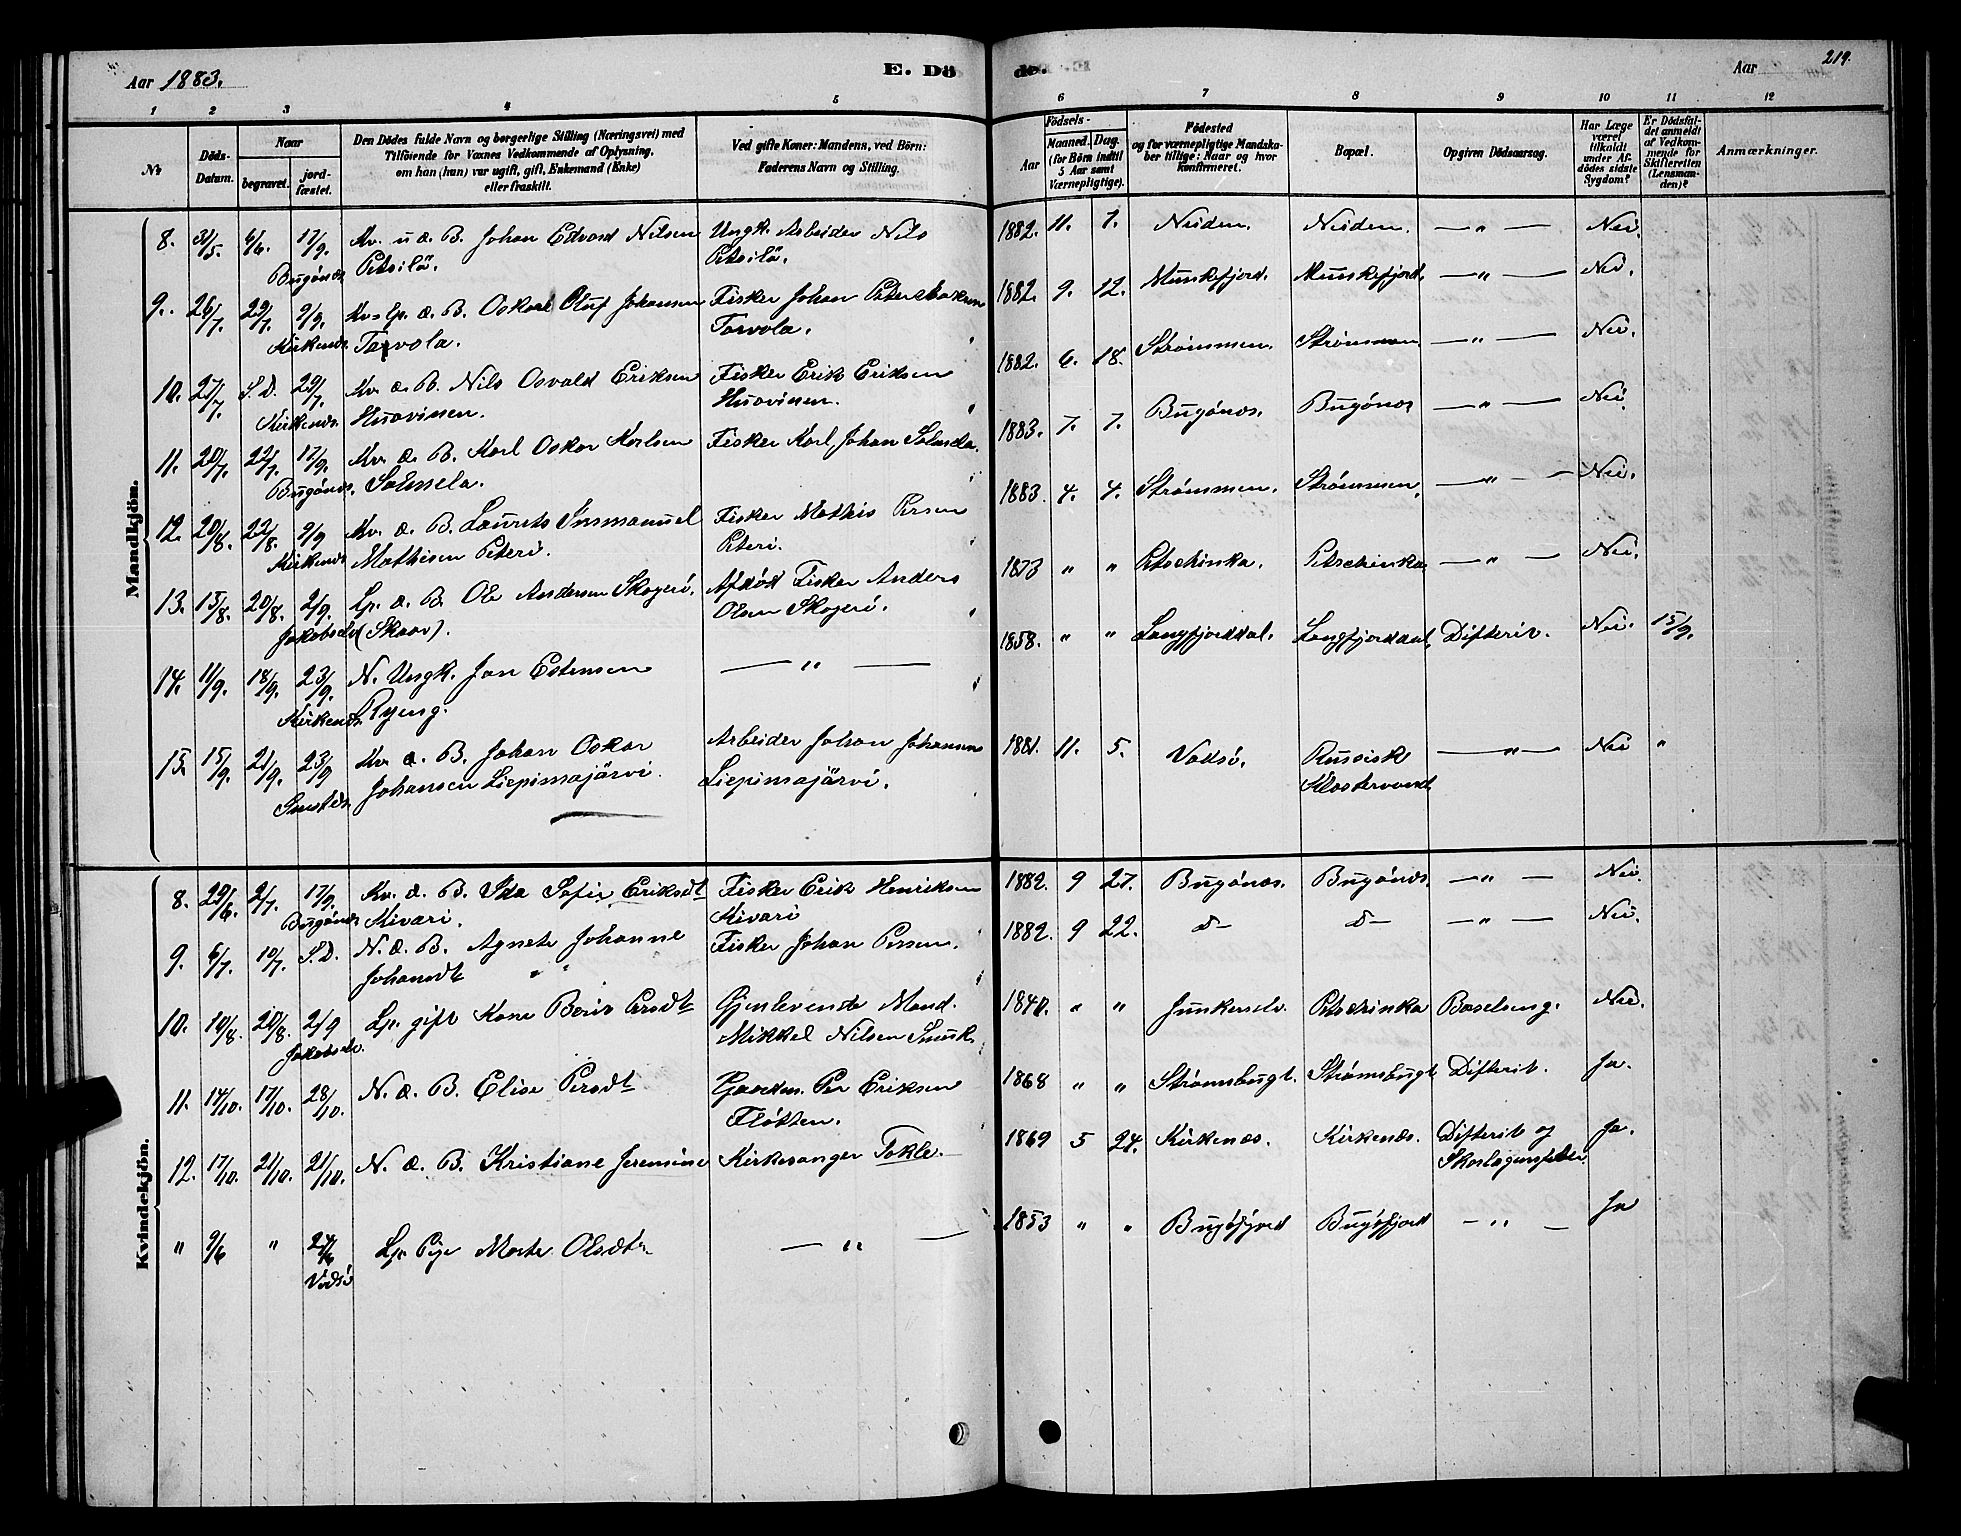 Aar 1883.
E. Dö
de.
Aar
219.
1 2 3 4 5
6 7 8 9 10 11 12
№
Döds-Datum.
Naar
begravet.
jord-fæstet.
Den Dödes fulde Navn og borgerlige Stilling (Næringsvei) med
Tilföiende for Voxnes Vedkommende af Oplysning,
om han (hun) var ugift, gift, Enkemand (Enke)
eller fraskilt.
Ved gifte Koner: Mandens, ved Börn:
Faderens Navn og Stilling.
Födsels-
Aar
Maaned.
Dag.
(for Börn indtil
5 Aar samt
Værnepligtige).
Födested
og for værnepligtige Mandska-
ber tillige: Naar og hvor
konfirmeret.
Bopæl.
Opgiven Dödsaarsag.
Har Læge
været
tilkaldt
under Af-
dödes sidste
Sygdom?
Er Dödsfal-
det anmeldt
af Vedkom-
mende for
Skifteretten
(Lensman-
den)?
Anmærkninger.
Mandkjön.
8. 31/5. 6/6. 17/9. Kv. u æ. B. Johan Edvard Nilsen Ungk. Arbeider Nils 1882. 11. 7. Neiden. Neiden. — " — Nei.
Bugönæs
9. 26/7. 29/7. 9/9. Kv-Lp. æ. B. Oskar Oluf Johansen Fisker Johan Peter 1882. 9. 12. Munkefjord. Munkefjord. — " — Nei.
Kirkenæs. Tarvola. Tarvola.
10. 27/7. S. D. 29/7. Kv. æ. B. Nils Osvald Eriksen Fisker Erik Eriksen 1882. 6. 18. Strømmen. Strømmen — " — Nei.
Kirkenæs. Huovinen. Huovinen.
11. 20/7. 22/7. 17/9. Kv. æ. B. Karl Oskar Karlsen Fisker Karl Johan Salmela. 1883. 7. 7. Bugönæs. Bugönæs — " — Nei.
Bugönæs. Salmela.
12. 20/8. 22/8. 9/9 Kv. æ. B. Laurits Immanuel Fisker Mathis Persen 1883. 4. 4. Strømmen. Strømmen. — " — Nei.
Kirkenæs Mathisen Peteri. Peteri.
13. 15/8. 20/8. 2/9. Lp. æ. B. Ole Andersen Skogerö. Afdöd Fisker Anders 1873 " " Petschinka. Petschinka — " — Nei.
Jakobselv (Skaar). Olsen Skogerö.
14. 11/9. 18/9. 23/9. N. Ungk. Jon Estensen — " — 1858. " " Langfjorddal. Langfjorddal. Difterit. Nei. 15/9.
Kirkenæs Ryeng.
15. 15/9. 21/9. 23/9 Kv. æ. B. Johan Oskar Arbeider Johan Johansen 1881. 11. 5. Vadsö. Russisk — " — Nei "
Johansen Liepimajärvi. Liepimajärvi. Klostervand
Kvindekjön.
8. 29/6. 2/7. 17/9. Kv. æ. B. Ida Sofie Eriksdt Fisker Erik Henriksen 1882. 9 27. Bugönæs. Bugönæs. — " — Nei.
Bugönæs Kivari. Kivari
9. 6/7. 10/7. S. D. N. æ. B. Agnete Johanne Fisker Johan Persen. 1882. 9 22. d— d— — " — Nei.
Johansdt " "
10. 10/8. 20/8. 2/9 Lp. gift Kone Berit Persdt Gjenlevende Mand. 1840. " " Junkerselv. Petschinka Barselseng. Nei.
Jakobselv. Mikkel Nilsen
11. 14/10. 17/10. 28/10. N. æ. B. Elise Persdt Gaardm. Per Eriksen 1868 " " Strømsbugt. Strømsbugt Difterit. Ja.
Fløtten.
12. 17/10. 21/10. 21/10. N. æ. B. Kristiane Jeremine Kirkesanger Tokle. 1869 5 24. Kirkenæs. Kirkenæs. Difterit og Ja.
Skarlagensfeber
" 9/6 " 24/6 Lp. Pige Marte Olsdtr — " — 1853 " " Bugöfjord Bugöfjord — " — Ja
Vadsö